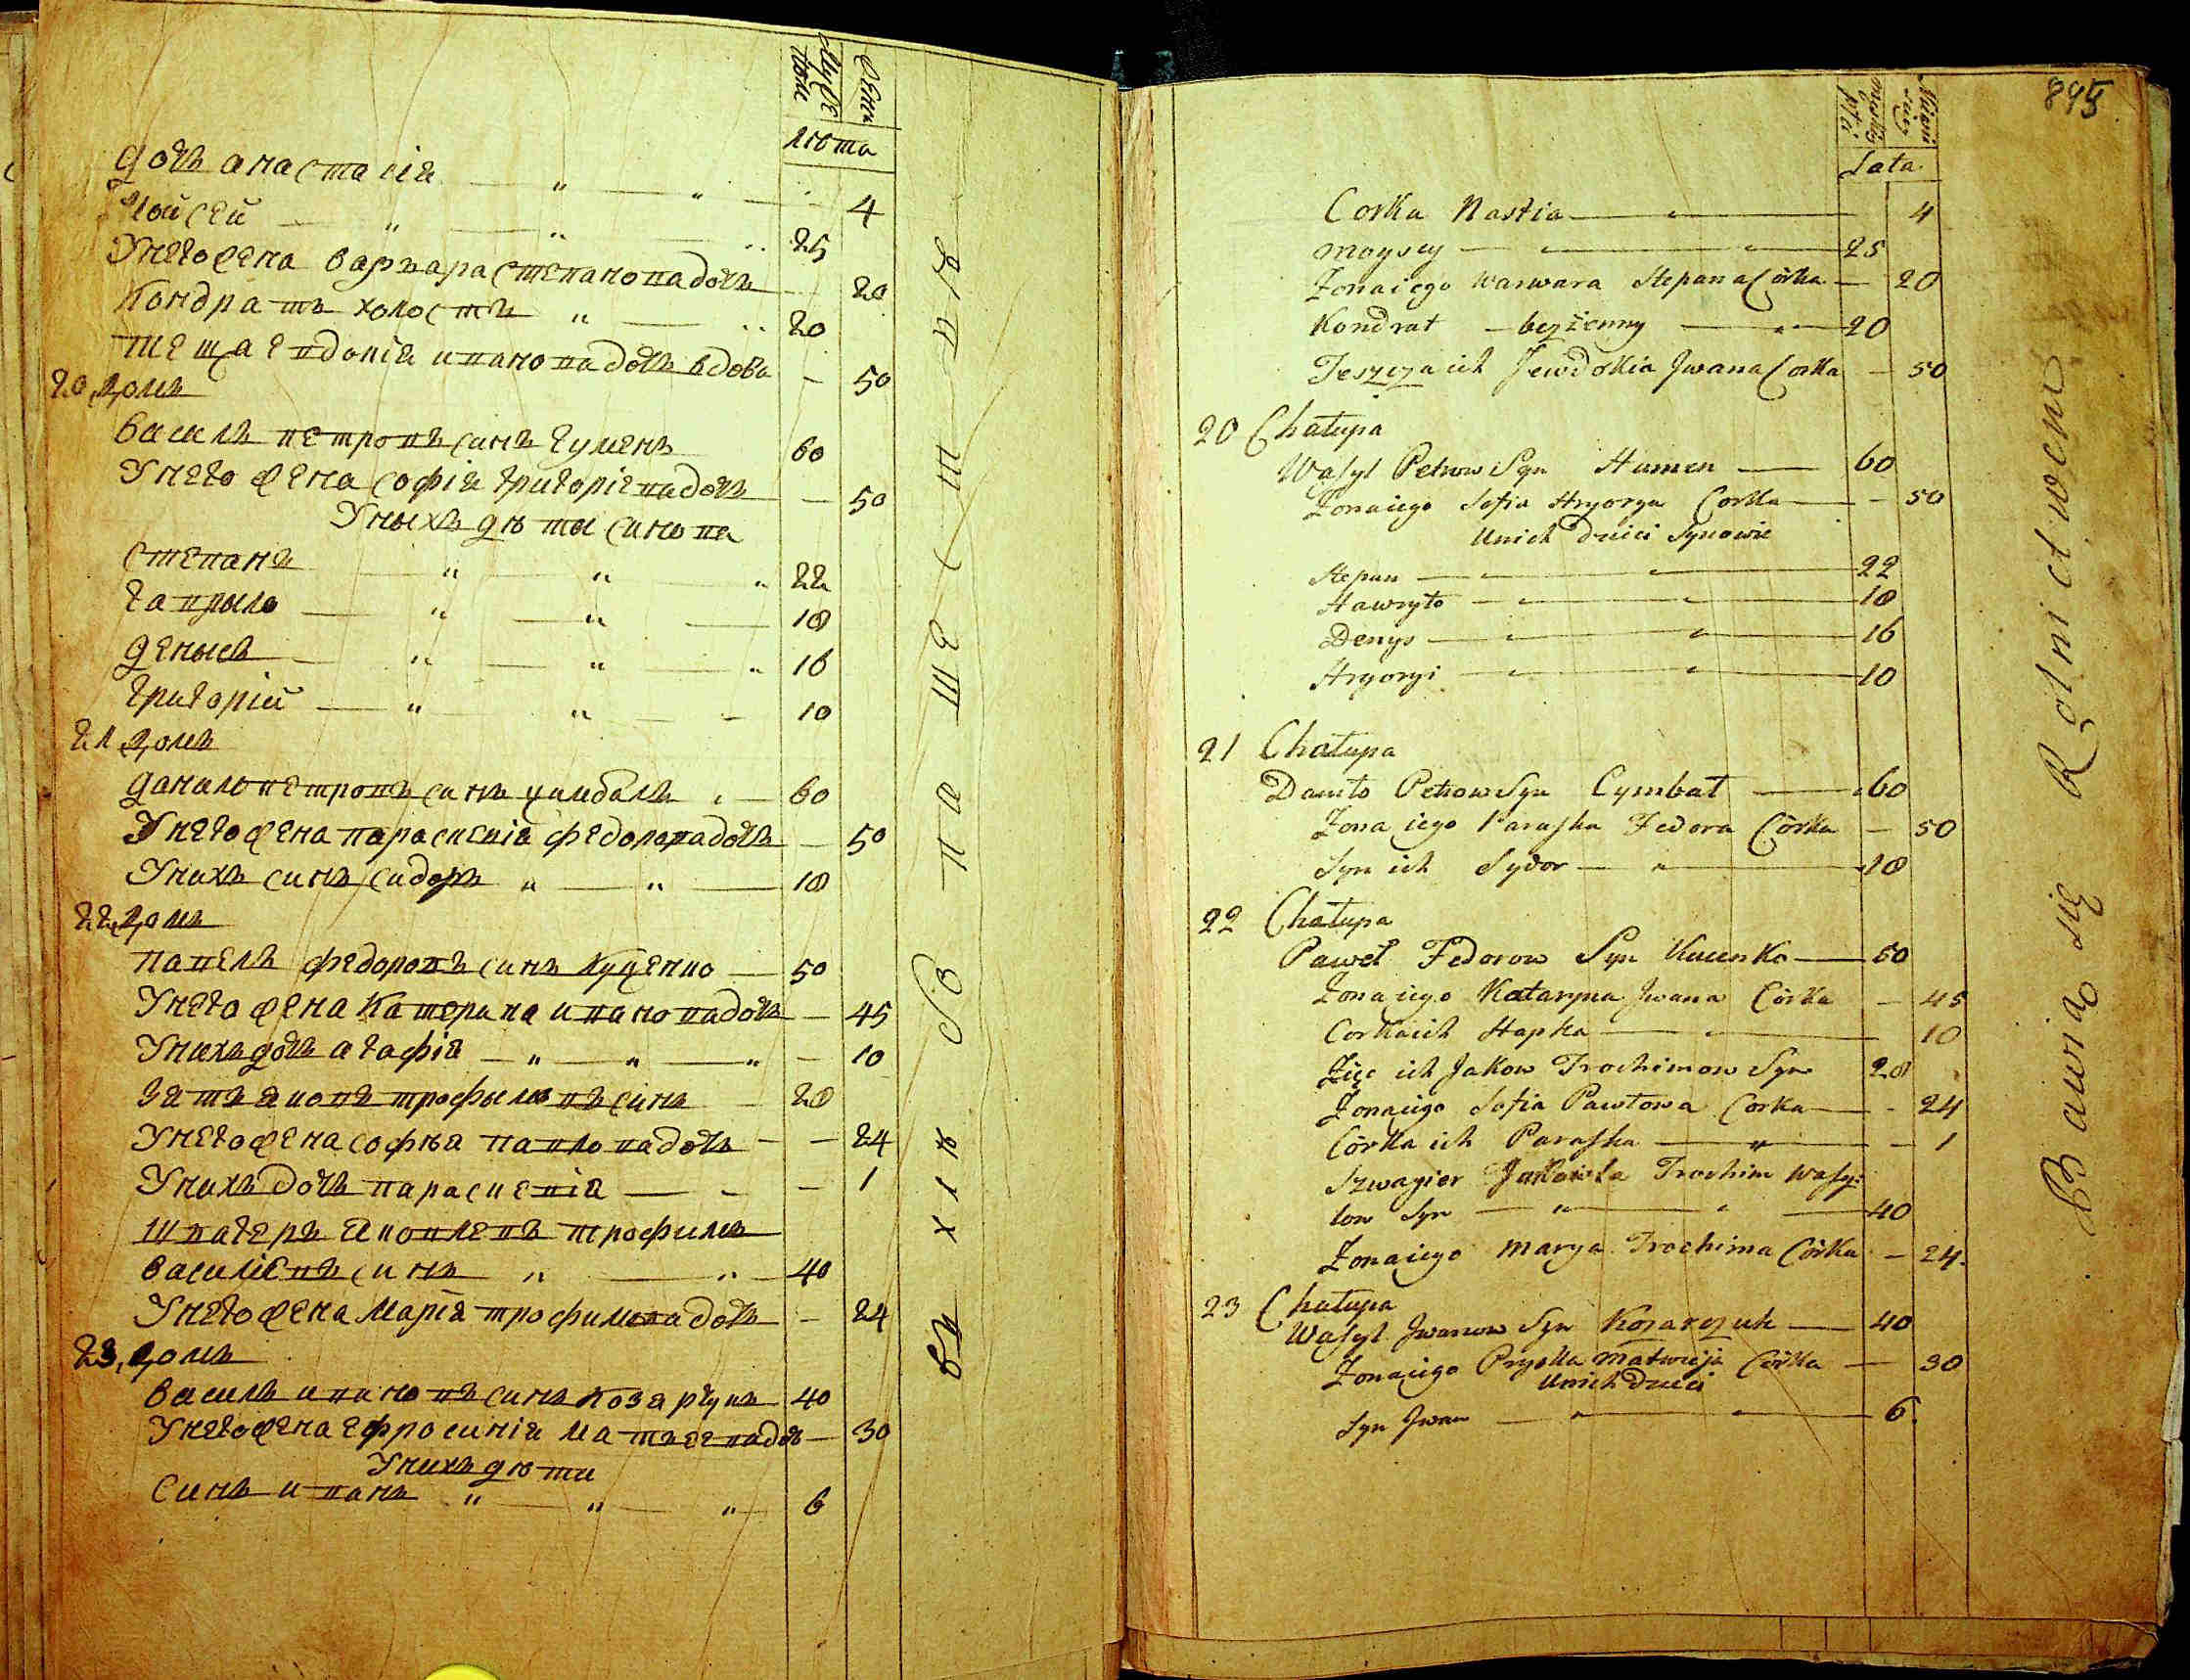 Мужеска
пола
Женска
лѣта
дочь анастасія 4
Мойсей 25
У него жена варъвара степанова дочь 20
Кондратъ холостъ 20
теща евдокія иванова дочь вдова 50
20 домъ
василь петровъ синъ гуменъ 60
У него жена софія григоріева дочь 50
У ныхъ дѣты синова
степанъ 22
гаврыло 18
денысъ 16
григорій 10
21 домъ
данило петровъ синъ цимбалъ 60
У него жена параскевія федорова дочь 50
У нихъ синъ сидоръ 18
22 домъ
павелъ федоровъ синъ куценко 50
У него жена катерина иванова дочь 45
У нихъ дочь агафія 10
зять яковъ трофымовъ синъ 28
У него жена софѣя павлова дочь 24
У нихъ дочь параскевія 1
швагеръ яковлевъ трофимъ
василіевъ синъ 40
У него жена Марія трофимова дочь 24
23 домъ
василь ивановъ синъ козарчукъ 40
У него жена ефросинія матвеева дочь 30
У нихъ дѣти
синъ иванъ 6
895
Lata
Corka Nastia 4
Moysey 25
Zona iego Warwara Stepana Córka 20
Kondrat bezżenny 20
Teszcza ich Jewdokia Jwana Corka 50
20 Chałupa
Wasyl Petrow Syn Humen 60
Zona iego Sofia Hryorya Corka 50
U nich dzieci Synowie
Stepan 22
Hawryło 18
Denys 16
Hryoryi 10
21 Chałupa
Daniło Petrow Syn Cymbał 60
Zona iego Paraska Fedora Córka 50
Syn ich Sydor 18
22 Chałupa
Paweł Fedorow Syn Kucenko 50
Zona iego Kataryna Jwana Córka 45
Corka ich Hapka 10
Zięc ich Jakow Trochimow Syn 28
Zona iego Sofia Pawłowa Corka 24
Córka ich Paraska 1
Szwagier Trochim Wasy:
low Syn 40
Zona iego Marya Trochima Córka 24
23 Chałupa
Wasyl Jwanow Syn Kozarczuk 40
Zona iego Pryska Matwieja Córka 30
U nich Dzieci
Syn Jwan 6
Bawią się Rolnictwem